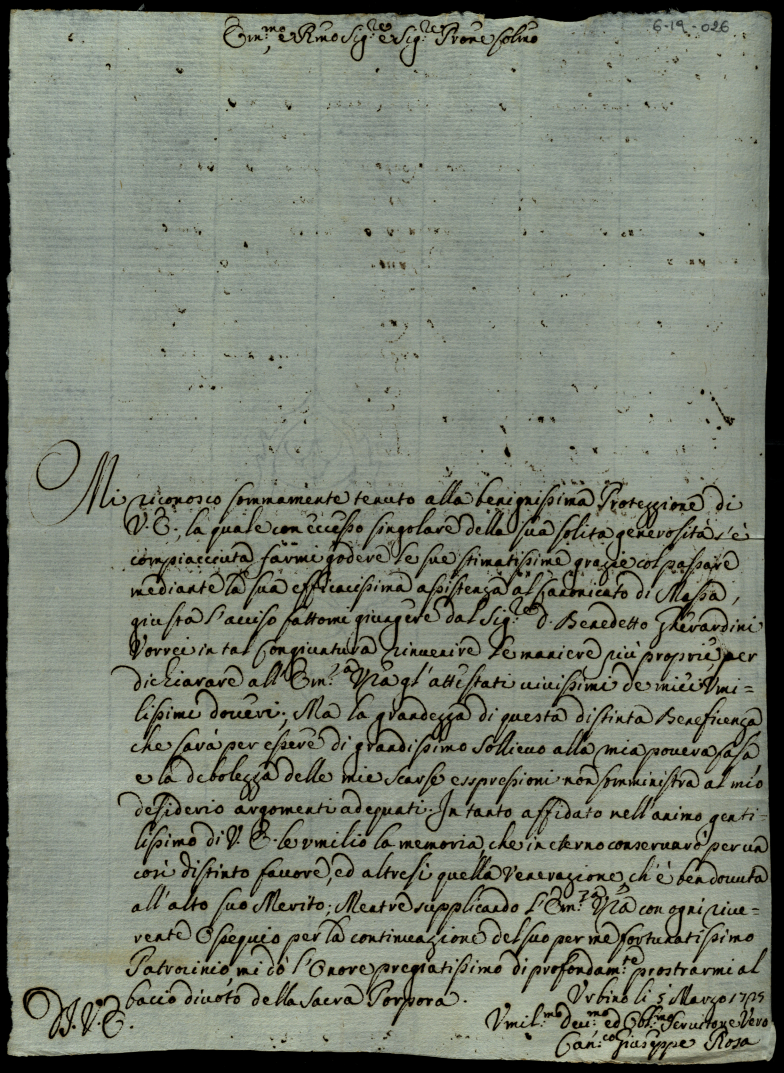 6-19-026
Em.mo, e Rmo Sig.re e Sig.re Prone Colmo
Mi riconosco sommamente tenuto alla benignissima Protezzione di
V. E., la quale con eccesso singolare della sua solita generosità s'è
compiacciuta farmi godere le sue stimatissime grazie col passare
mediante la sua efficacissima assistenza al Canonicato di Massa,
giusta l'avviso fattomi giugere dal Sig.re D. Benedetto Gherardini
Vorrei in tal congiuntura rinvenire le maniere più proprie per
dichiarare all'Em.za Vra gl'attestati vivissimi de miei Vmi=
lissimi doveri; Ma la grandezza di questa distinta Beneficenza
che sarà per essere di grandissimo sollievo alla mia povera Casa
e la debolezza delle mie scarse esspressioni non somministra al mio
desiderio argomenti adequati. In tanto affidato nell'animo genti=
lissimo di V. E. le vmilio la memoria, che in eterno conservarò per un
così distinto favore, ed altresì quella Venerazione, ch'è ben dovuta
all'alto suo Merito; Mentre supplicando l'Em.za Vra con ogni rive=
rente Ossequio per la continuazione del suo per me fortunatissimo
Patrocinio mi dò l'Onore pregiatissimo di profondam.te prostrarmi al
bacio divoto della Sacra Porpora.
Vrbino li 5 Marzo 1725
Di V. E.
Vmil.mo Deu.mo ed Obl.mo Servitore Vero
Can.co Giuseppe Rosa